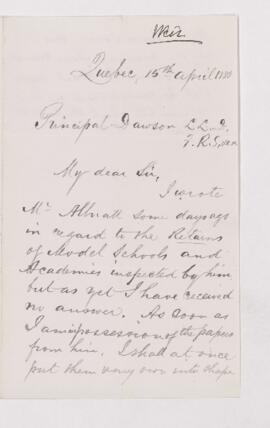 Weir
Quebec, 15th April 1880
Principal Dawson LL.D.
F.R.S, &c
My dear Sir,
I wrote
Mr some days ago
in regard to the Returns
of Model Schools and
Academies inspected by him
but as yet I have received
no answer. As soon as
I am in possession of the papers
from him, I shall at once
put them into shape